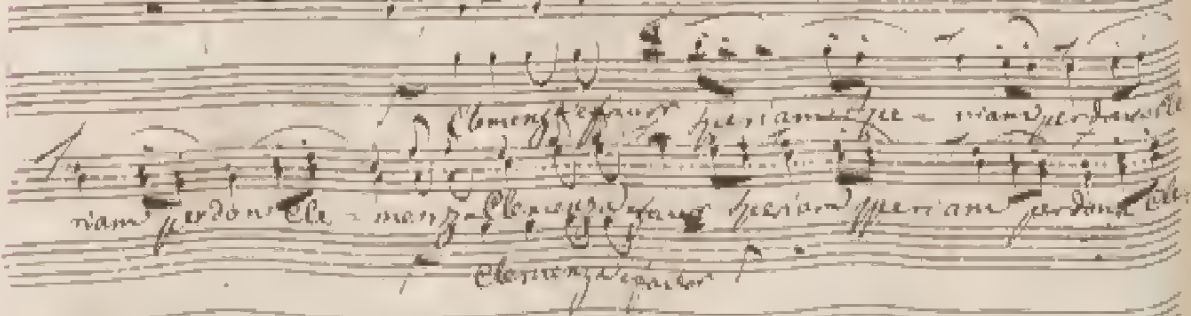 Clemenza e favor speriam spe - riam perdono Cle
riam perdono Cle - menza Clemenza e favor speriam speriam perdono Cle
Clemenza e favor